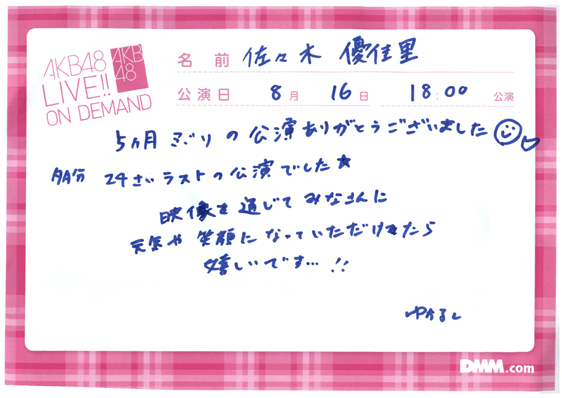 AKB48
LIVE!!
ON DEMAND
AKB
48
名前 佐々木 優佳里
公演日 8月 16日 18:00 公演
5ヵ月ぶりの公演ありがとうございました
多分 24さいラストの公演でした★
映像を通じてみなさんに
元気や笑顔になっていただけたら
嬉しいです…!!
ゆかるん
DMM.com